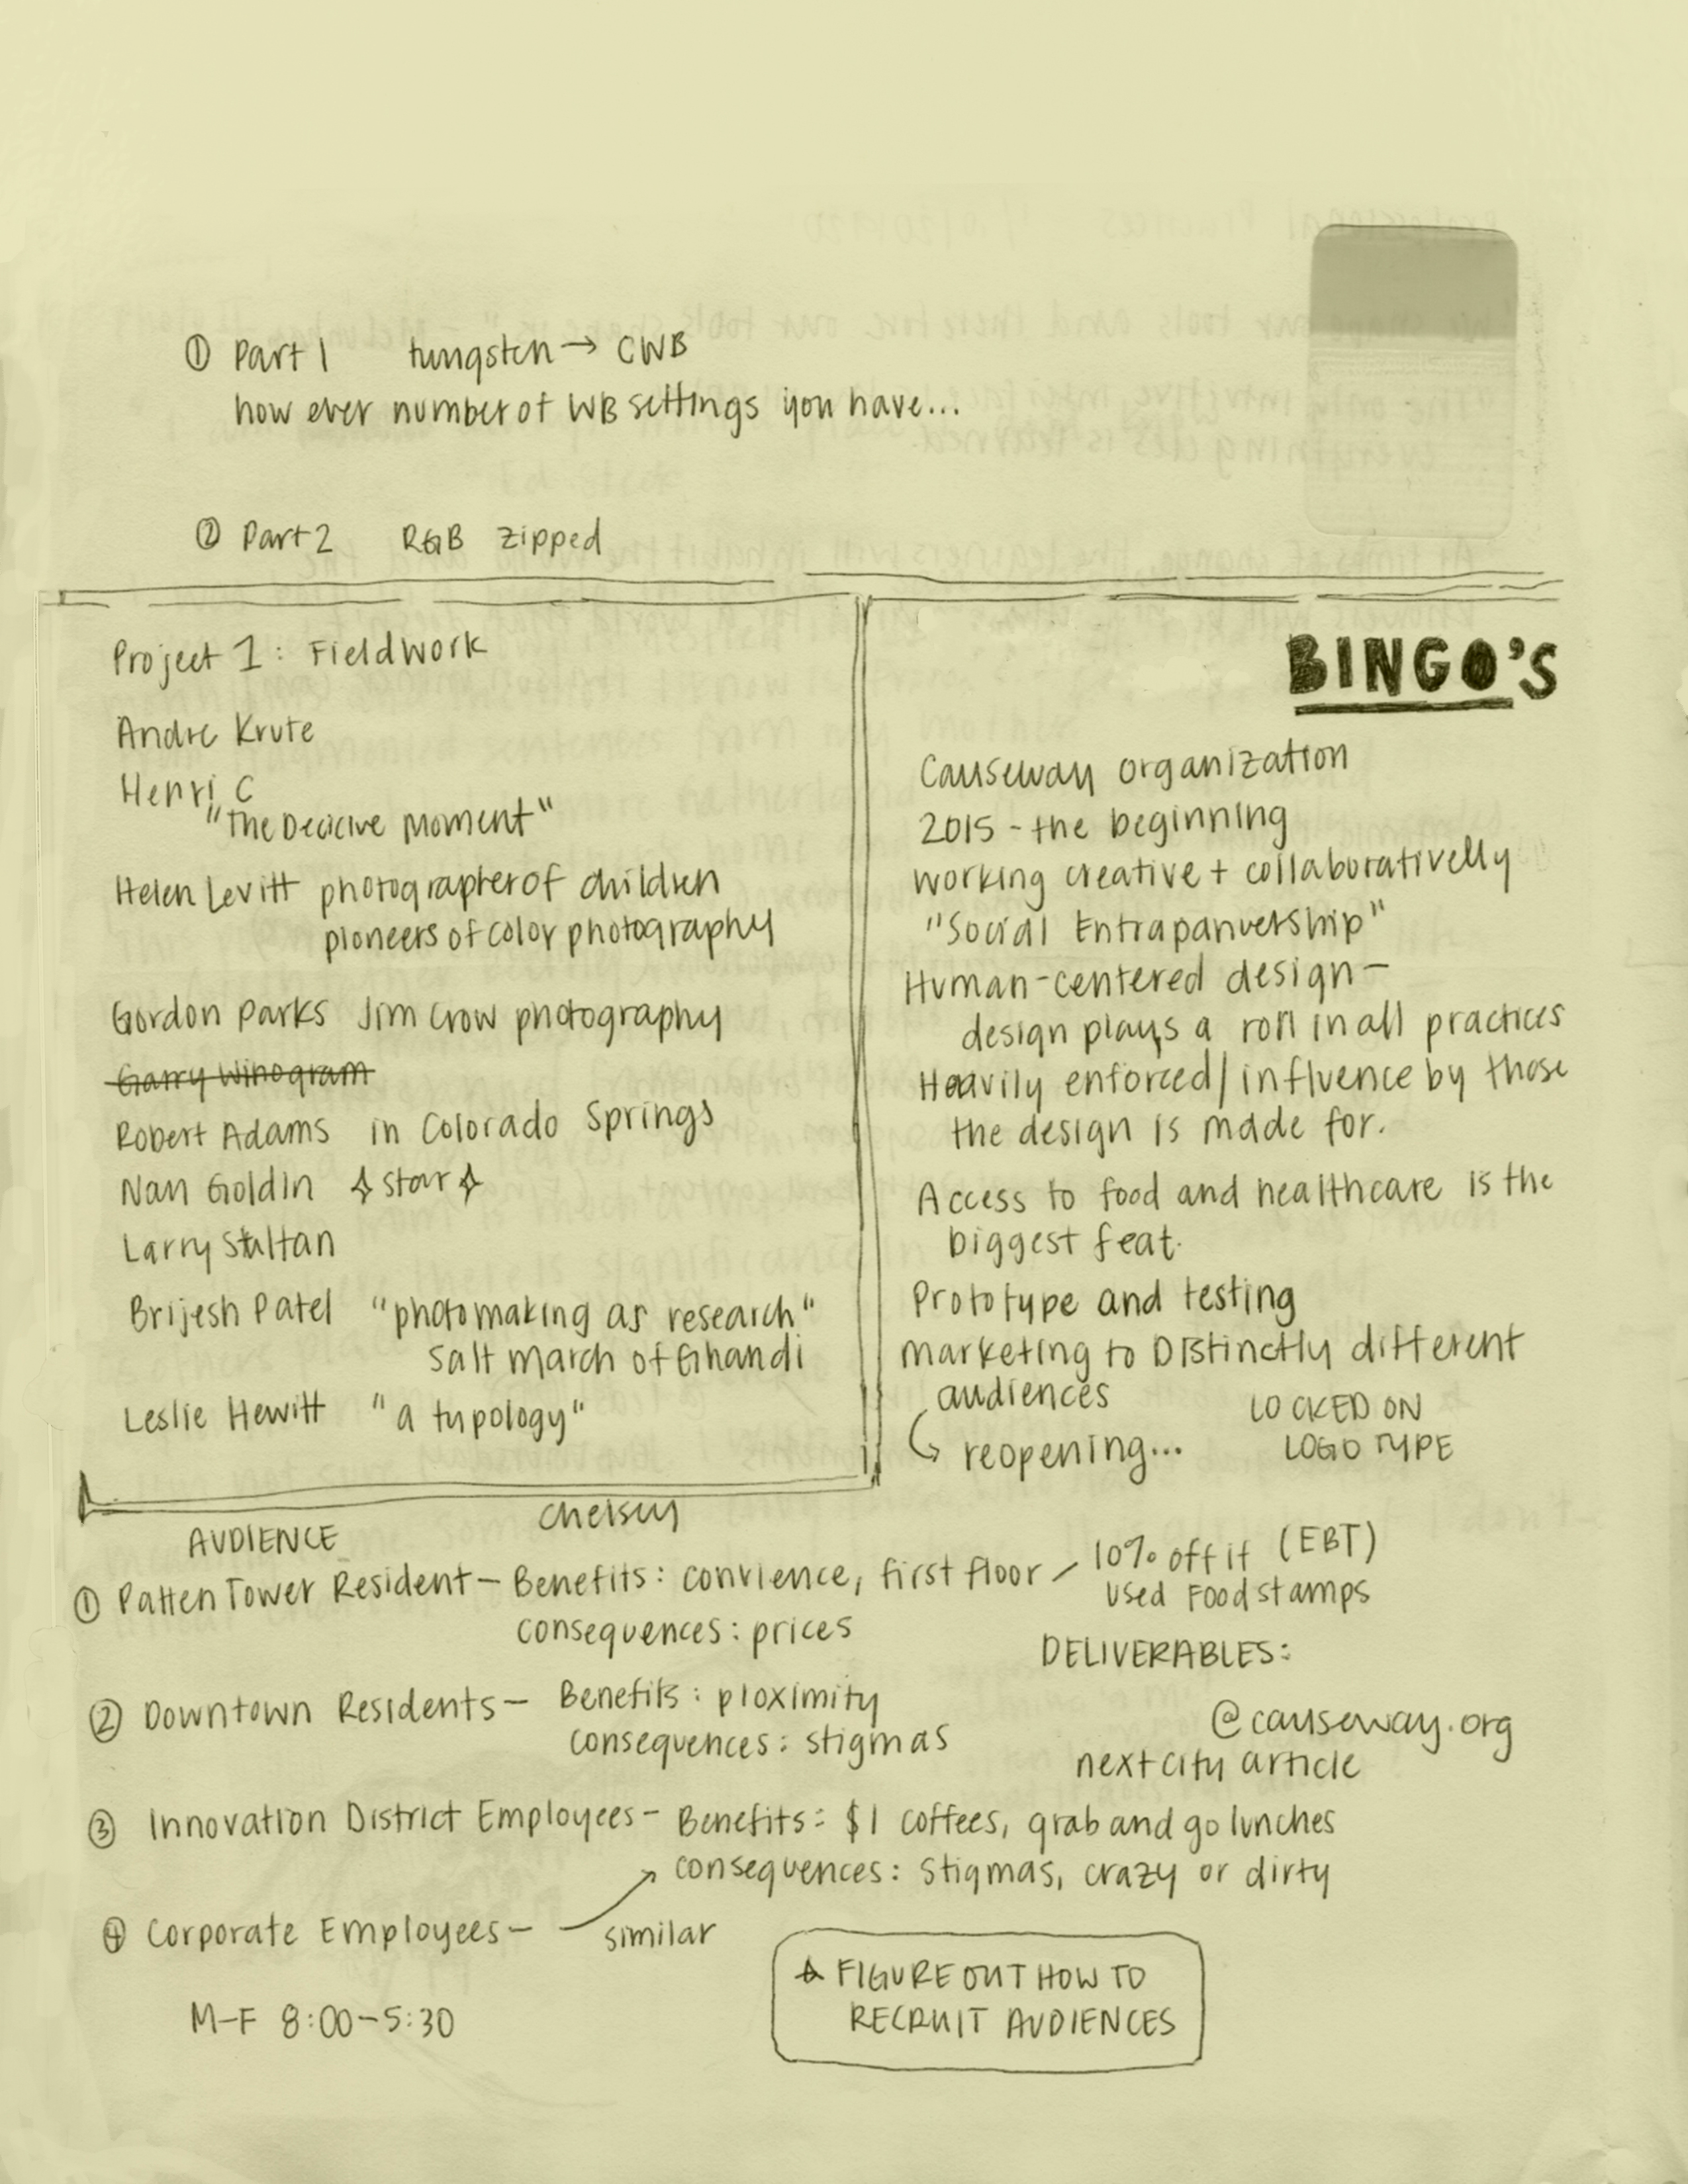 ① Part 1 tungsten → CWB
how ever number of WB settings you have...
② Part 2 RGB zipped
Project 1: Fieldwork
Andre Krute
Henri C
"The Decicive Moment"
Helen Levitt photographer of children
pioneers of color photography
Gordon Parks Jim Crow photography
Garry Winogram
Robert Adams in Colorado Springs
Nan Goldin ✧ star ✧
Larry Sultan
Brijesh Patel "photomaking as research"
Salt March of Ghandi
Leslie Hewitt "a typology"
BINGO'S
Causeway organization
2015 - the beginning
working creative + collaborativelly
"Social Entrapanuership"
Human-centered design -
design plays a roll in all practices
Heavily enforced/influence by those
the design is made for.
Access to food and healthcare is the
biggest feat.
Prototype and testing
marketing to Distinctly different
audiences
↪ reopening...
LOCKED ON
LOGO TYPE
Chelsey
AUDIENCE
① Patten Tower Resident - Benefits: convience, first floor - 10% off if (EBT)
used Food stamps
consequences: prices
DELIVERABLES:
② Downtown Residents - Benefits: proximity
consequences: stigmas
@causeway.org
next city article
③ Innovation District Employees - Benefits: $1 coffees, grab and go lunches
consequences: stigmas, crazy or dirty
④ Corporate Employees - similar
M-F 8:00-5:30
☆ FIGURE OUT HOW TO
RECRUIT AUDIENCES